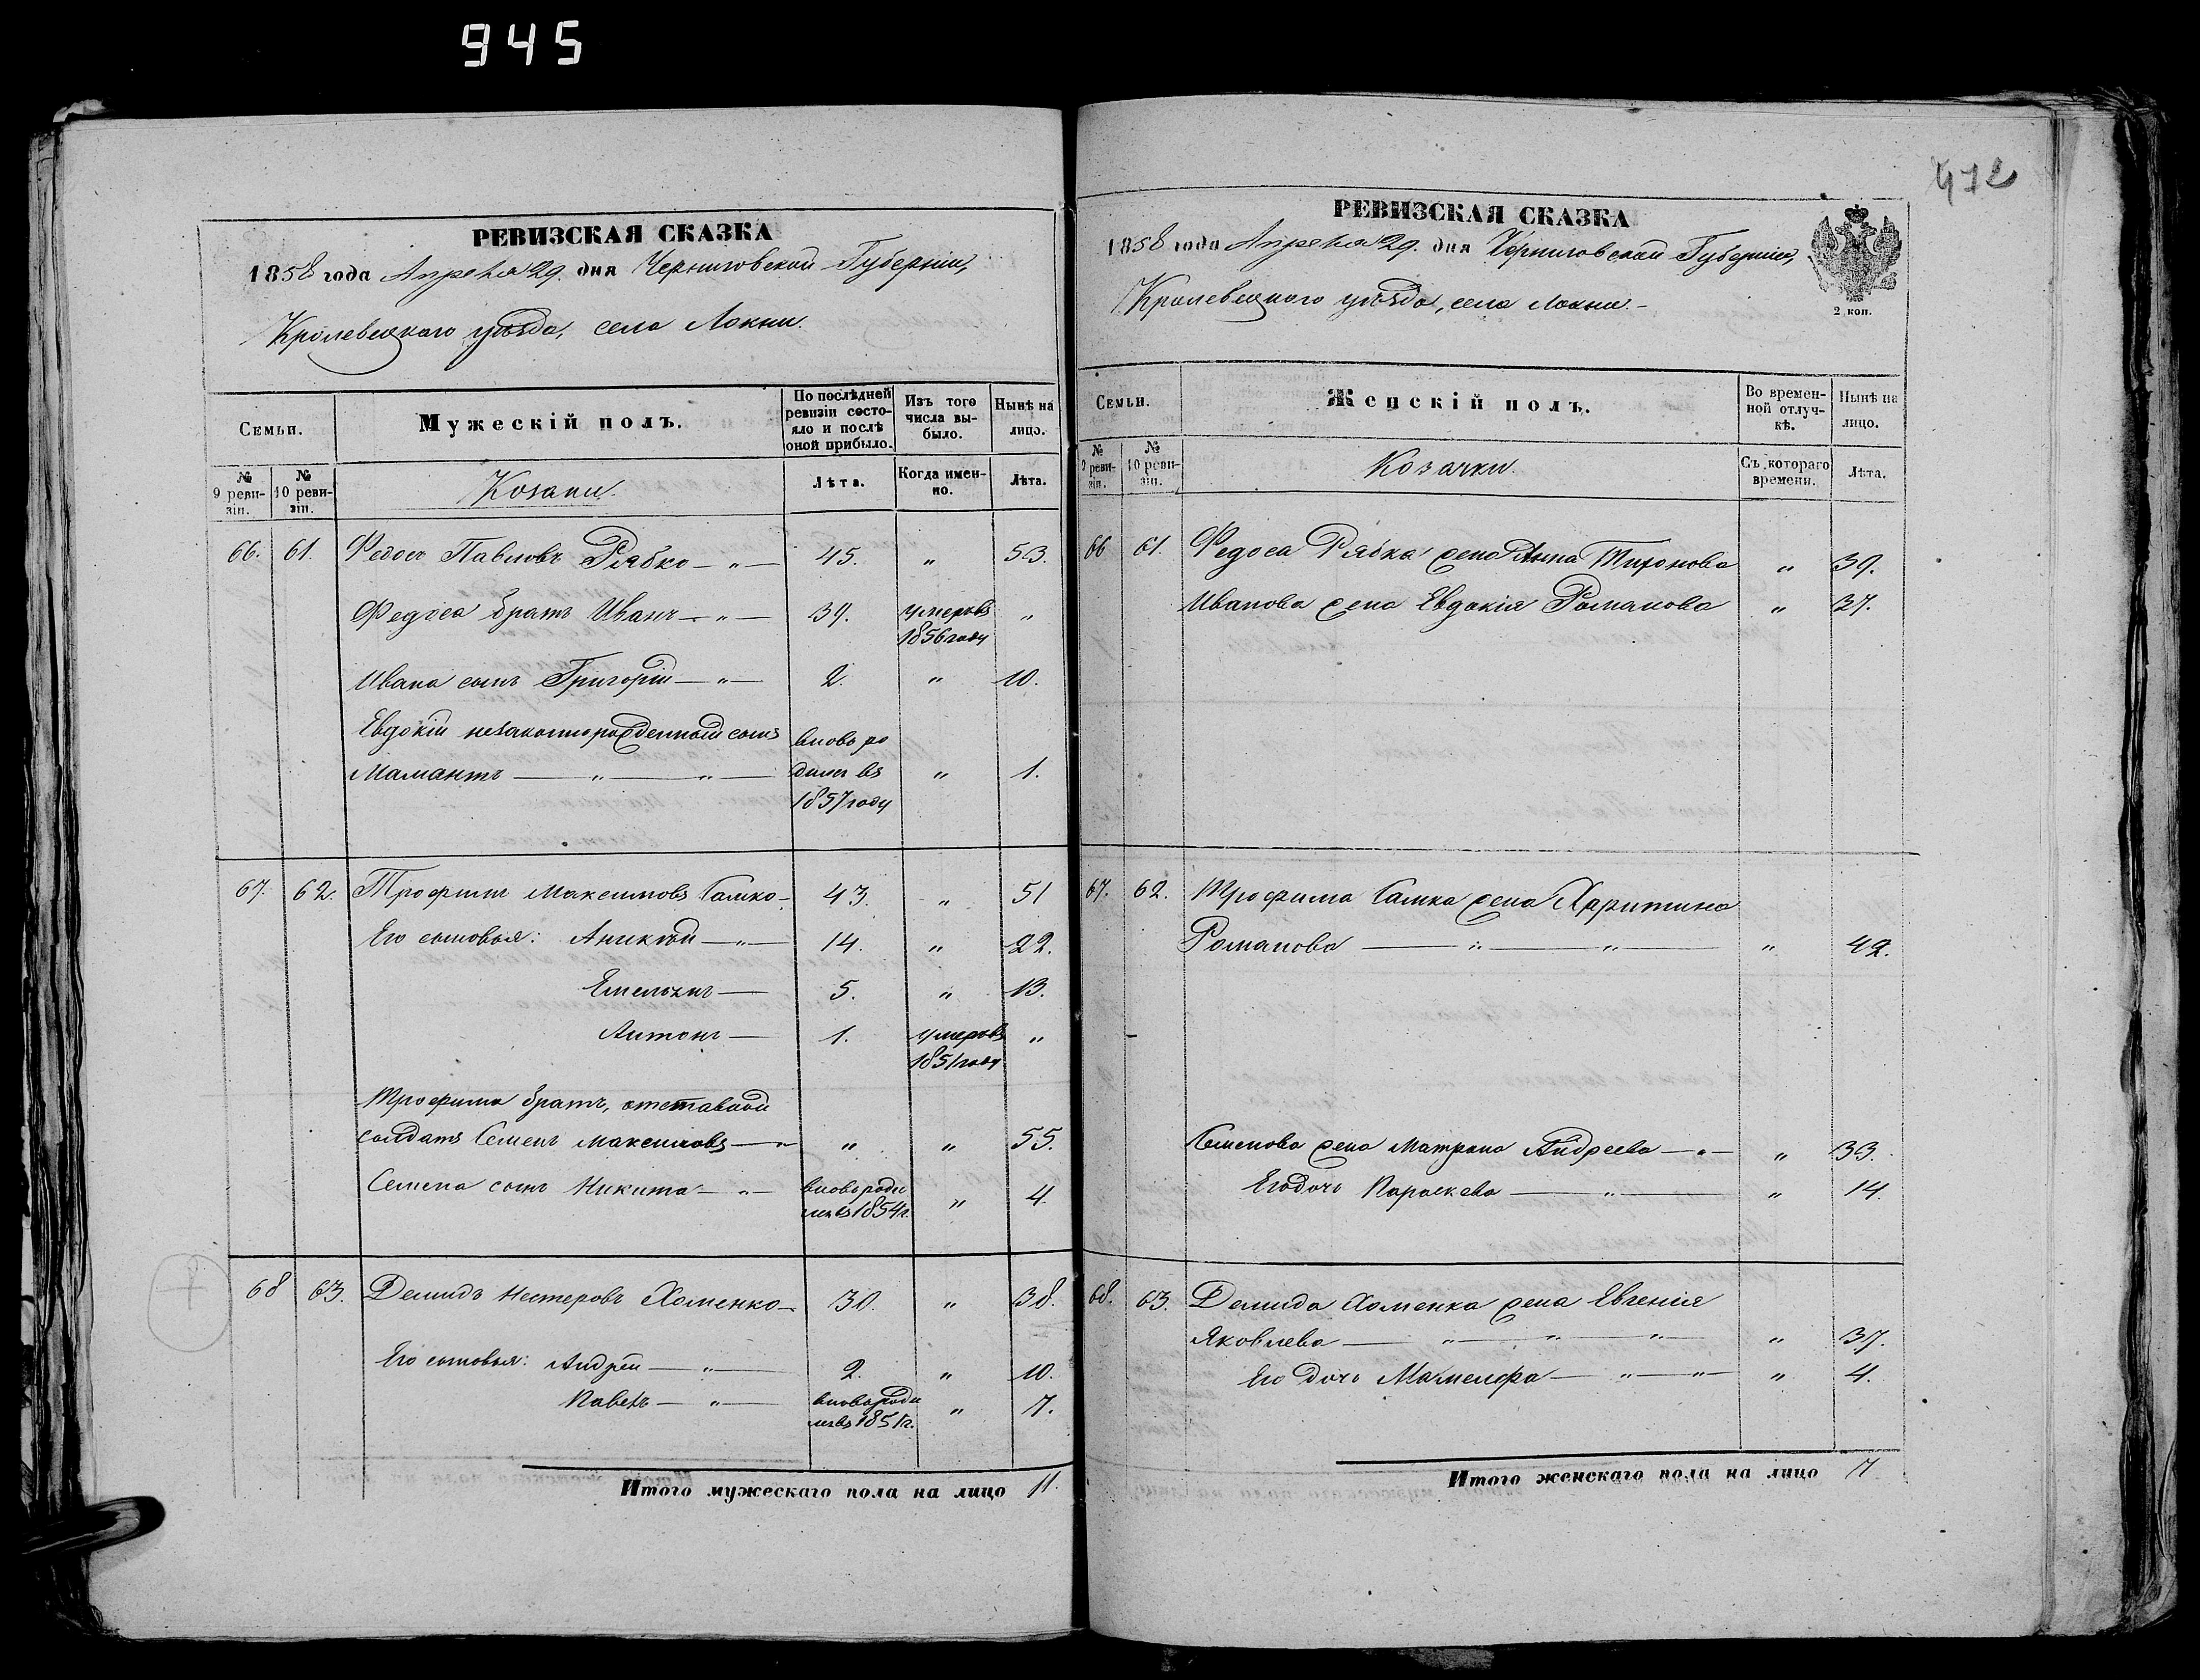 945
472
РЕВИЗСКАЯ СКАЗКА
1858 года Апреля 29. дня Черниговской Губерніи,
Кролевецкаго уѣзда, села Локни.
Семьи.
Мужескій полъ.
По послѣдней ревизіи состояло и послѣ оной прибыло.
Изъ того числа выбыло.
Нынѣ на лицо.
№ 9 ревизіи.
№ 10 ревизіи.
Козаки.
Лѣта.
Когда именно.
Лѣта.
66. 61. Федосъ Павловъ Рябко — „ — 45. „ 53.
Федоса братъ Иванъ — „ — 39. умеръ въ 1856 году „
Ивана сынъ Григорій — „ — 2. „ 10.
Евдокіи незаконнорожденный сынъ
Мамантъ — „ — „ — вновь родился въ 1857 году „ 1.
67. 62. Трофимъ Максимовъ Самко — 43. „ 51
Его сыновья: Аникѣй — „ — 14. „ 22.
Емельянъ — 5. „ 13.
Антонъ — 1. умеръ въ 1851 году „
Трофима братъ, отставной
солдатъ Семенъ Максимовъ — „ „ „ 55.
Семена сынъ Никита — „ — вновь родился въ 1854 г. „ 4
68 63. Демидъ Нестеровъ Хоменко — 30. „ 38.
Его сыновья: Андрей — „ — 2. „ 10.
Павелъ — „ — вновь родился въ 1851 г. „ 7.
Итого мужескаго пола на лицо 11.
РЕВИЗСКАЯ СКАЗКА
1858 года Апреля 29. дня Черниговской Губерніи,
Кролевецкаго уѣзда, села Локни. —
2 коп.
Семьи.
Женскій полъ.
Во временной отлучкѣ.
Нынѣ на лицо.
№ 9 ревизіи.
№ 10 ревизіи.
Козачки.
Съ котораго времени.
Лѣта.
66 61. Федоса Рябка жена Анна Тихонова „ 39.
Иванова жена Евдокія Романова „ 37.
67. 62. Трофима Самка жена Харитина
Романова — „ — „ — „ 42.
Семенова жена Матрона Андреева — „ — „ 33.
Его дочь Параскева — „ — „ 14.
68. 63. Демида Хоменка жена Евгенія
Яковлева — „ — „ — „ — „ 37.
Его дочь Мамелфа — „ — „ — „ 4.
Итого женскаго пола на лицо 7